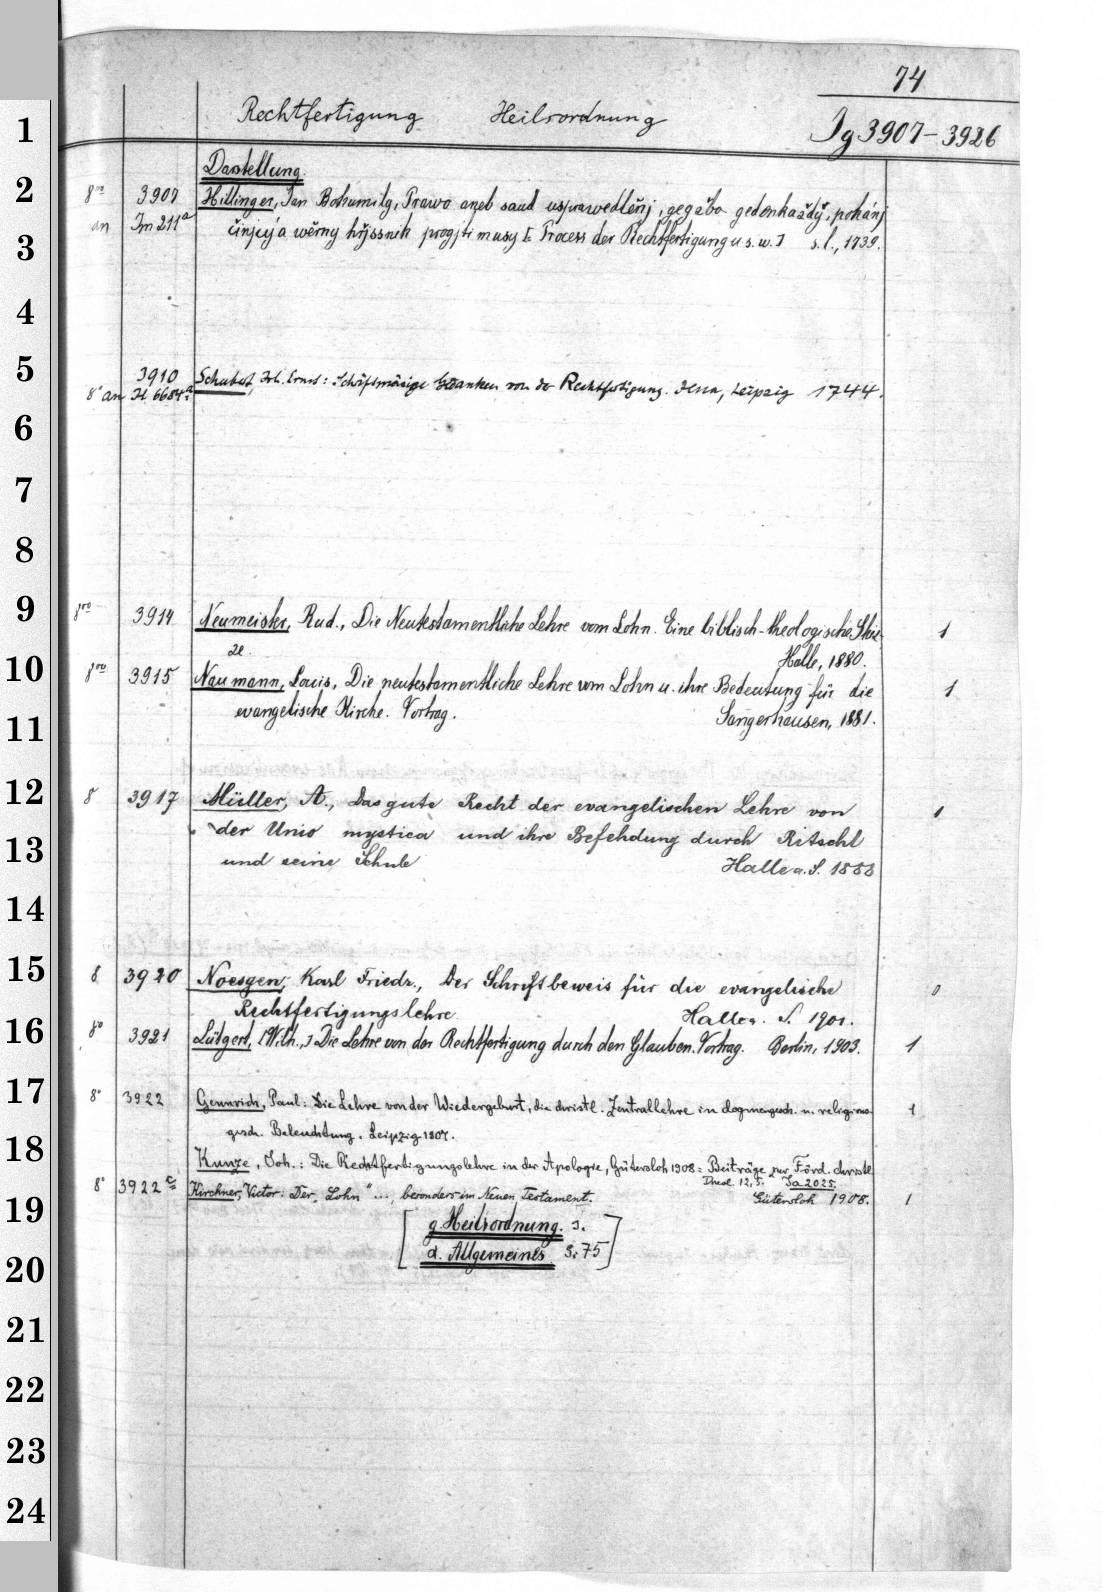 74
Rechtfertigung Heilsordnung Ig 3907-3926
1
Darstellung.
2
8vo 3907 Hillinger, Jan Bohumilg, Prawo aneb saud uspravedlěnj, gegžba gedenkaždý, pokánj
an Im 211a činjcý a wěrny hřjssnik progjti musy [: Process der Rechtfertigung u.s.w.] s.l., 1739.
3
4
5
3910 Schubert, Joh. Ernst: Schriftmäsige Gedanken von der Rechtfertigung. Jena, Leipzig 1744.
8° an Il 6684a
6
7
8
9
8vo 3914 Neumeister, Rud., Die Neutestamentliche Lehre vom Lohn. Eine biblisch-theologische Skiz-
ze. Halle, 1880. 1
10
8vo 3915 Naumann, Louis, Die neutestamentliche Lehre vom Lohn u. ihre Bedeutung für die 1
evangelische Kirche. Vortrag. Sangerhausen, 1881.
11
12
8 3917 Müller, A., Das gute Recht der evangelischen Lehre von 1
der Unio mystica und ihre Befehdung durch Ritschl
13
und seine Schule Halle a. S. 1888
14
15
8 3920 Noesgen, Karl Friedr., Der Schriftbeweis für die evangelische 0
Rechtfertigungslehre. Halle a. S. 1901.
16
8° 3921 Lütgert, [Wilh.,] Die Lehre von der Rechtfertigung durch den Glauben. Vortrag. Berlin, 1903. 1
17
8° 3922 Gennrich, Paul: Die Lehre von der Wiedergeburt, die christl. Zentrallehre in dogmengesch. u. religions- 1
gesch. Beleuchtung. Leipzig 1907.
18
Kunze, Joh.: Die Rechtfertigungslehre in der Apologie, Gütersloh 1908 = Beiträge zur Förd. christl.
Theol. 12,5. Ia 2025.
8° 3922c Kirchner, Victor: Der „Lohn" ..., besonders im Neuen Testament. Gütersloh 1908. 1
19
[ g. Heilsordnung. s.
d. Allgemeines S. 75 ]
20
21
22
23
24